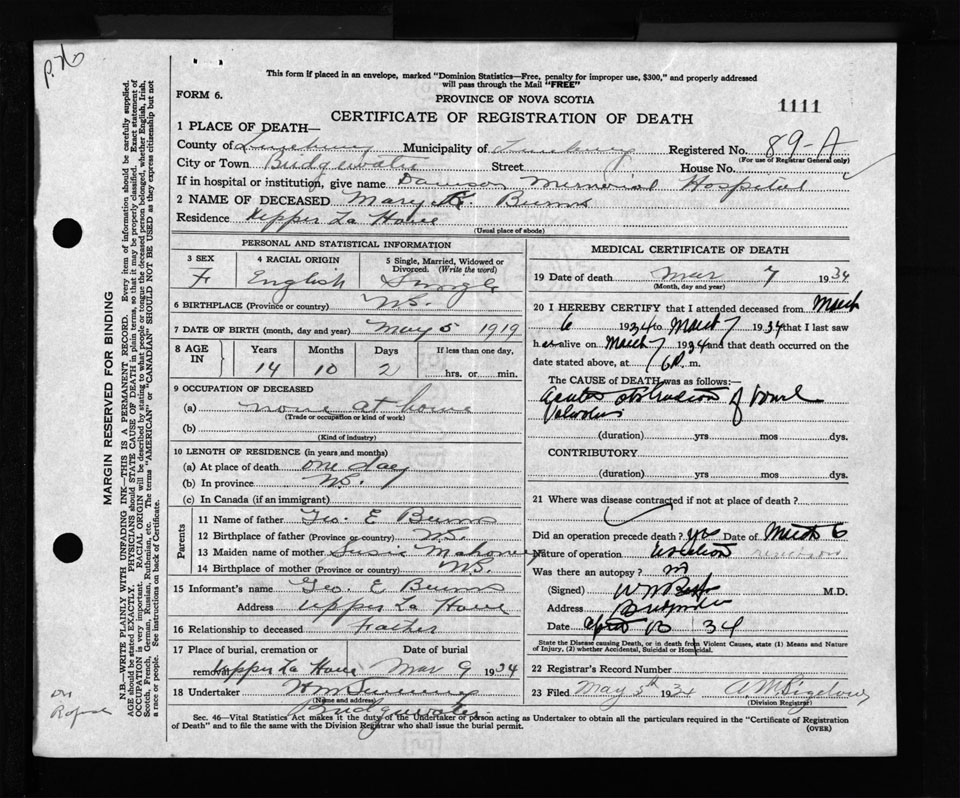 This form if placed in an envelope, marked "Dominion Statistics—Free, penalty for improper use, $300," and properly addressed
will pass through the Mail "FREE"
FORM 6.
PROVINCE OF NOVA SCOTIA
1111
CERTIFICATE OF REGISTRATION OF DEATH
1 PLACE OF DEATH—
County of Lunenburg Municipality of Lunenburg Registered No. 89-A
(For use of Registrar General only)
City or Town Bridgewater Street House No.
If in hospital or institution, give name Dawson Memorial Hospital
2 NAME OF DECEASED Mary Burns
Residence Upper La Have
(Usual place of abode)
PERSONAL AND STATISTICAL INFORMATION
3 SEX 4 RACIAL ORIGIN 5 Single, Married, Widowed or Divorced. (Write the word)
F English Single
6 BIRTHPLACE (Province or country) N.S.
7 DATE OF BIRTH (month, day and year) May 5 1919
8 AGE IN Years Months Days If less than one day,
14 10 2 hrs. or min.
9 OCCUPATION OF DECEASED
(a) none at home
(Trade or occupation or kind of work)
(b)
(Kind of industry)
10 LENGTH OF RESIDENCE (in years and months)
(a) At place of death one day
(b) In province N.S.
(c) In Canada (if an immigrant)
Parents
11 Name of father Geo. E Burns
12 Birthplace of father (Province or country) N.S.
13 Maiden name of mother Susie Mahoney
14 Birthplace of mother (Province or country) N.S.
15 Informant's name Geo. E Burns
Address Upper La Have
16 Relationship to deceased Father
17 Place of burial, cremation or removal Date of burial
Upper La Have Mar 9 1934
18 Undertaker Wm
(Name and address)
Bridgewater
MEDICAL CERTIFICATE OF DEATH
19 Date of death Mar 7 1934
(Month, day and year)
20 I HEREBY CERTIFY that I attended deceased from March
6 1934 to March 7 1934 that I last saw
her alive on March 7 1934 and that death occurred on the
date stated above, at m.
The CAUSE OF DEATH was as follows:—
Acute obstruction of bowel
Volvulus
(duration) yrs mos dys.
CONTRIBUTORY
(duration) yrs mos dys.
21 Where was disease contracted if not at place of death?
Did an operation precede death? yes Date of March 6
Nature of operation
Was there an autopsy?
(Signed) M.D.
Address Bridgewater
Date April 13 34
State the Disease causing Death, or in death from Violent Causes, state (1) Means and Nature
of Injury, (2) whether Accidental, Suicidal or Homicidal.
22 Registrar's Record Number
23 Filed May 5th 1934
(Division Registrar)
Sec. 46—Vital Statistics Act makes it the duty of the Undertaker or person acting as Undertaker to obtain all the particulars required in the "Certificate of Registration
of Death" and to file the same with the Division Registrar who shall issue the burial permit.
(OVER)
MARGIN RESERVED FOR BINDING
N.B.—WRITE PLAINLY WITH UNFADING INK—THIS IS A PERMANENT RECORD. Every item of information should be carefully supplied.
AGE should be stated EXACTLY. PHYSICIANS should STATE CAUSE OF DEATH in plain terms, so that it may be properly classified. Exact statement of
OCCUPATION is very important. RACIAL ORIGIN will be described by stating to what people or tongue the deceased person belonged, whether English, Irish,
Scotch, French, German, Russian, Ruthenian, etc. The terms "AMERICAN" or "CANADIAN" SHOULD NOT BE USED as they express citizenship but not
a race or people. See instructions on back of Certificate.